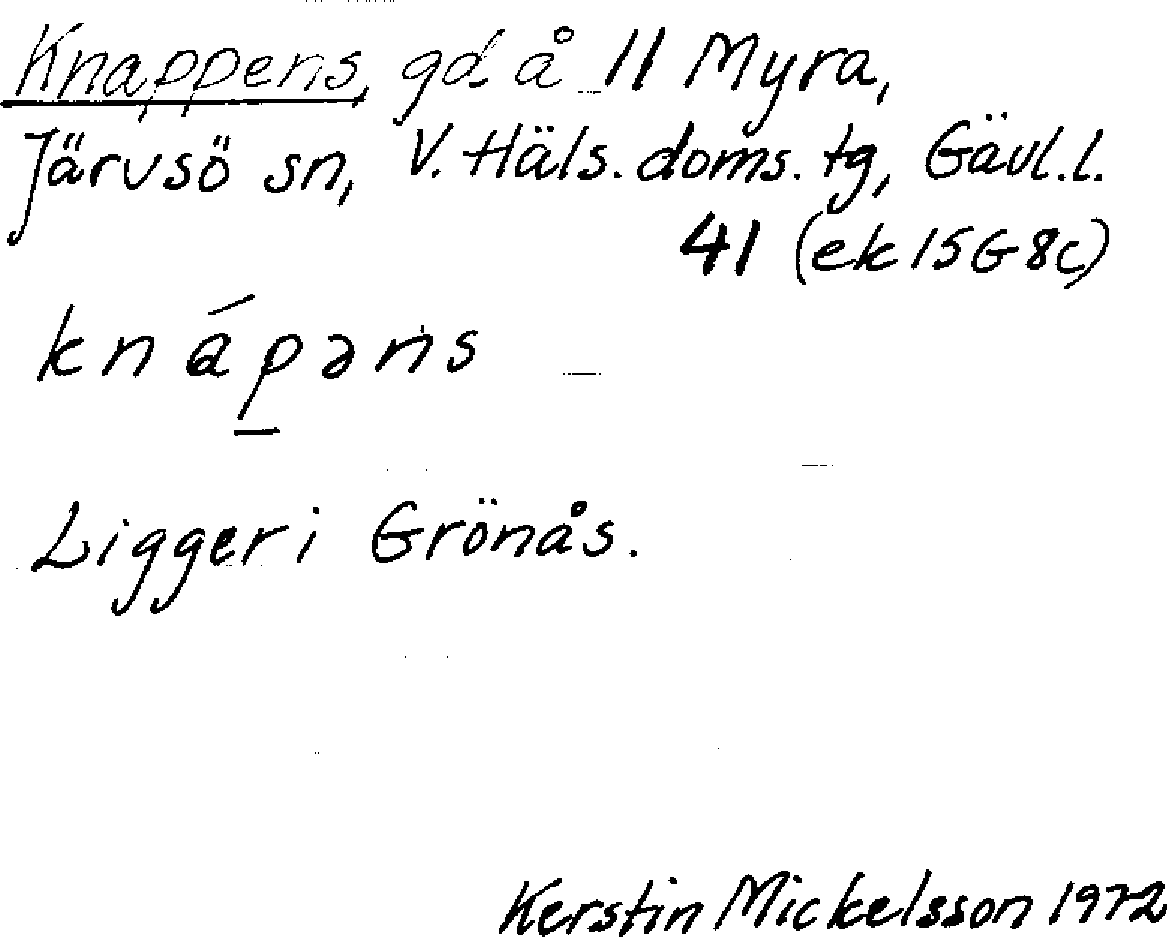 Knappens, gd å 11 Myra,
Järvsö sn, V. Häls. doms. tg, Gävl.l.
41 (ek 15G8c)
knáp̲əns
Ligger i Grönås.
Kerstin Mickelsson 1972